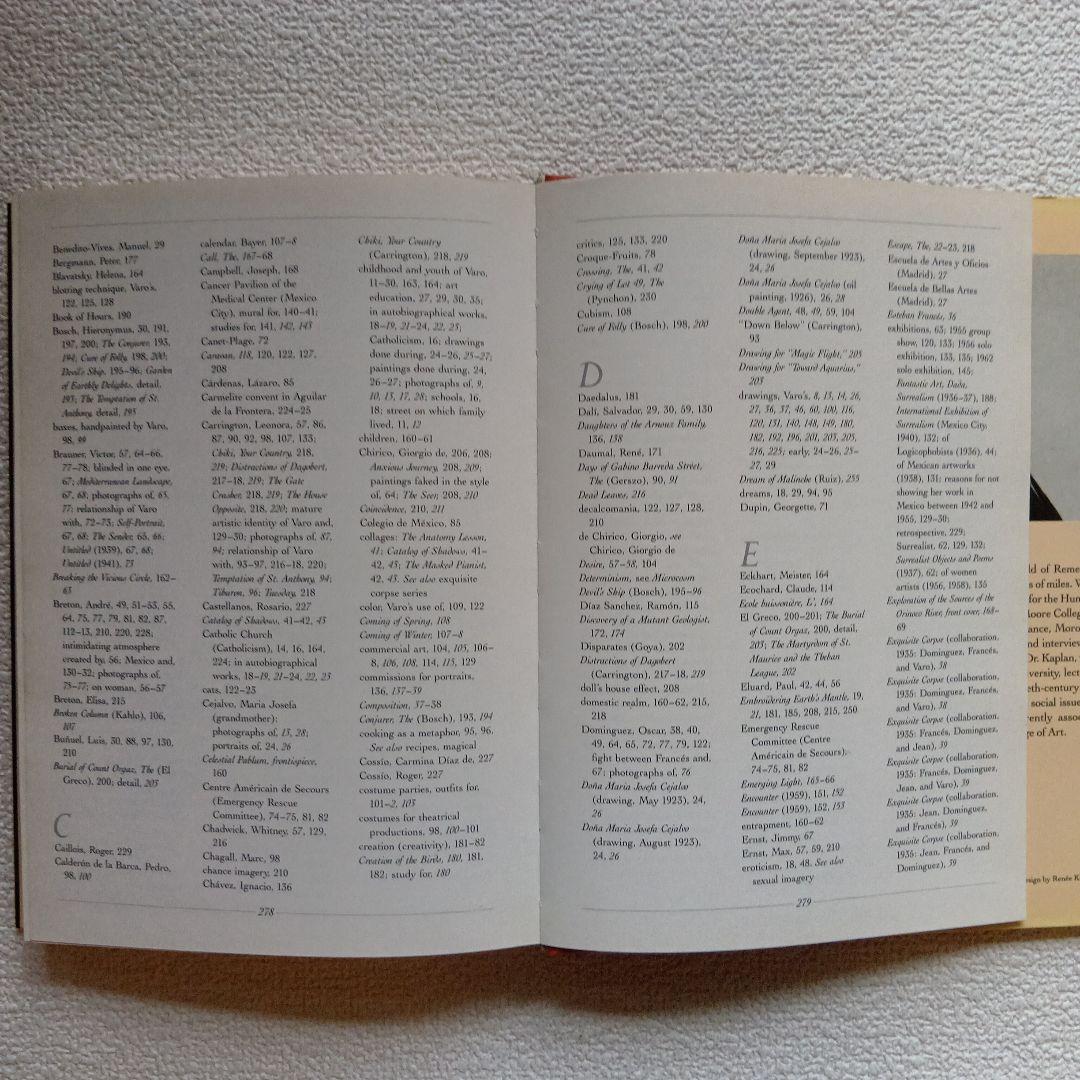 Benedito-Vives, Manuel, 29
Bergmann, Peter, 177
Blavatsky, Helena, 164
blotting technique, Varo's,
122, 125, 128
Book of Hours, 190
Bosch, Hieronymus, 30, 191,
197, 200; The Conjurer, 193,
194; Cure of Folly, 198, 200;
Devil's Ship, 195–96; Garden
of Earthly Delights, detail,
193; The Temptation of St.
Anthony, detail, 195
boxes, handpainted by Varo,
98, 99
Brauner, Victor, 57, 64–66,
77–78; blinded in one eye,
67; Mediterranean Landscape,
67, 68; photographs of, 65,
77; relationship of Varo
with, 72–73; Self-Portrait,
67, 68; The Sender, 65, 66;
Untitled (1939), 67, 68;
Untitled (1941), 73
Breaking the Vicious Circle, 162–
63
Breton, André, 49, 51–53, 55,
64, 75, 77, 79, 81, 82, 87,
112–13, 210, 220, 228;
intimidating atmosphere
created by, 56; Mexico and,
130–32; photographs of,
75–77; on woman, 56–57
Breton, Elisa, 215
Broken Column (Kahlo), 106,
107
Buñuel, Luis, 30, 88, 97, 130,
210
Burial of Count Orgaz, The (El
Greco), 200; detail, 203
C
Caillois, Roger, 229
Calderón de la Barca, Pedro,
98, 100
calendar, Bayer, 107–8
Call, The, 167–68
Campbell, Joseph, 168
Cancer Pavilion of the
Medical Center (Mexico
City), mural for, 140–41;
studies for, 141, 142, 143
Canet-Plage, 72
Caravan, 118, 120, 122, 127,
208
Cárdenas, Lázaro, 85
Carmelite convent in Aguilar
de la Frontera, 224–25
Carrington, Leonora, 57, 86,
87, 90, 92, 98, 107, 133;
Chiki, Your Country, 218,
219; Distractions of Dagobert,
217–18, 219; The Gate
Crasher, 218, 219; The House
Opposite, 218, 220; mature
artistic identity of Varo and,
129–30; photographs of, 87,
94; relationship of Varo
with, 93–97, 216–18, 220;
Temptation of St. Anthony, 94;
Tiburon, 96; Tuesday, 218
Castellanos, Rosario, 227
Catalog of Shadows, 41–42, 43
Catholic Church
(Catholicism), 14, 16, 164,
224; in autobiographical
works, 18–19, 21–24, 22, 23
cats, 122–23
Cejalvo, María Josefa
(grandmother):
photographs of, 13, 28;
portraits of, 24, 26
Celestial Pablum, frontispiece,
160
Centre Américain de Secours
(Emergency Rescue
Committee), 74–75, 81, 82
Chadwick, Whitney, 57, 129,
216
Chagall, Marc, 98
chance imagery, 210
Chávez, Ignacio, 136
Chiki, Your Country
(Carrington), 218, 219
childhood and youth of Varo,
11–30, 163, 164; art
education, 27, 29, 30, 35;
in autobiographical works,
18–19, 21–24, 22, 23;
Catholicism, 16; drawings
done during, 24–26, 25–27;
paintings done during, 24,
26–27; photographs of, 9,
10, 13, 17, 28; schools, 16,
18; street on which family
lived, 11, 12
children, 160–61
Chirico, Giorgio de, 206, 208;
Anxious Journey, 208, 209;
paintings faked in the style
of, 64; The Seer, 208, 210
Coincidence, 210, 211
Colegio de México, 85
collages: The Anatomy Lesson,
41; Catalog of Shadows, 41–
42, 43; The Masked Pianist,
42, 43. See also exquisite
corpse series
color, Varo's use of, 109, 122
Coming of Spring, 108
Coming of Winter, 107–8
commercial art, 104, 105, 106–
8, 106, 108, 114, 115, 129
commissions for portraits,
136, 137–39
Composition, 37–38
Conjurer, The (Bosch), 193, 194
cooking as a metaphor, 95, 96.
See also recipes, magical
Cossío, Carmina Díaz de, 227
Cossío, Roger, 227
costume parties, outfits for,
101–2, 103
costumes for theatrical
productions, 98, 100–101
creation (creativity), 181–82
Creation of the Birds, 180, 181,
182; study for, 180
278
critics, 125, 133, 220
Croque-Fruits, 78
Crossing, The, 41, 42
Crying of Lot 49, The
(Pynchon), 230
Cubism, 108
Cure of Folly (Bosch), 198, 200
D
Daedalus, 181
Dalí, Salvador, 29, 30, 59, 130
Daughters of the Arnoux Family,
136, 138
Daumal, René, 171
Days of Gabino Barreda Street,
The (Gerszo), 90, 91
Dead Leaves, 216
decalcomania, 122, 127, 128,
210
de Chirico, Giorgio, see
Chirico, Giorgio de
Desire, 57–58, 104
Determinism, see Microcosm
Devil's Ship (Bosch), 195–96
Díaz Sanchez, Ramón, 115
Discovery of a Mutant Geologist,
172, 174
Disparates (Goya), 202
Distractions of Dagobert
(Carrington), 217–18, 219
doll's house effect, 208
domestic realm, 160–62, 215,
218
Domínguez, Oscar, 38, 40,
49, 64, 65, 72, 77, 79, 122;
fight between Francés and,
67; photographs of, 76
Doña María Josefa Cejalvo
(drawing, May 1923), 24,
26
Doña María Josefa Cejalvo
(drawing, August 1923),
24, 26
Doña María Josefa Cejalvo
(drawing, September 1923),
24, 26
Doña María Josefa Cejalvo (oil
painting, 1926), 26, 28
Double Agent, 48, 49, 59, 104
"Down Below" (Carrington),
93
Drawing for "Magic Flight," 205
Drawing for "Toward Aquarius,"
203
drawings, Varo's, 8, 13, 14, 26,
27, 36, 37, 46, 60, 100, 116,
120, 131, 140, 148, 149, 180,
182, 192, 196, 201, 203, 205,
216, 225; early, 24–26, 25–
27, 29
Dream of Malinche (Ruiz), 255
dreams, 18, 29, 94, 95
Dupin, Georgette, 71
E
Eckhart, Meister, 164
Ecochard, Claude, 114
Ecole buissonière, L', 164
El Greco, 200–201; The Burial
of Count Orgaz, 200, detail,
203; The Martyrdom of St.
Maurice and the Theban
League, 202
Eluard, Paul, 42, 44, 56
Embroidering Earth's Mantle, 19,
21, 181, 185, 208, 215, 230
Emergency Rescue
Committee (Centre
Américain de Secours),
74–75, 81, 82
Emerging Light, 165–66
Encounter (1959), 151, 152
Encounter (1959), 152, 153
entrapment, 160–62
Ernst, Jimmy, 67
Ernst, Max, 57, 59, 210
eroticism, 18, 48. See also
sexual imagery
Escape, The, 22–23, 218
Escuela de Artes y Oficios
(Madrid), 27
Escuela de Bellas Artes
(Madrid), 27
Esteban Francés, 36
exhibitions, 63; 1955 group
show, 120, 133; 1956 solo
exhibition, 133, 135; 1962
solo exhibition, 145;
Fantastic Art, Dada,
Surrealism (1936–37), 188;
International Exhibition of
Surrealism (Mexico City,
1940), 132; of
Logicophobists (1936), 44;
of Mexican artworks
(1938), 131; reasons for not
showing her work in
Mexico between 1942 and
1955, 129–30;
retrospective, 229;
Surrealist, 62, 129, 132;
Surrealist Objects and Poems
(1937), 62; of women
artists (1956, 1958), 135
Exploration of the Sources of the
Orinoco River, front cover, 168–
69
Exquisite Corpse (collaboration,
1935: Domínguez, Francés,
and Varo), 38
Exquisite Corpse (collaboration,
1935: Domínguez, Francés,
and Varo), 38
Exquisite Corpse (collaboration,
1935: Francés, Domínguez,
and Jean), 39
Exquisite Corpse (collaboration,
1935: Francés, Domínguez,
Jean, and Varo), 39
Exquisite Corpse (collaboration,
1935: Jean, Domínguez,
and Francés), 39
Exquisite Corpse (collaboration,
1935: Jean, Francés, and
Domínguez), 39
279
ld of Reme
s of miles.
for the Hun
Moore Colleg
ance, Moro
nd interview
Dr. Kaplan,
versity, lect
eth-century
social issue
rently assoc
ge of Art.
sign by Renée K